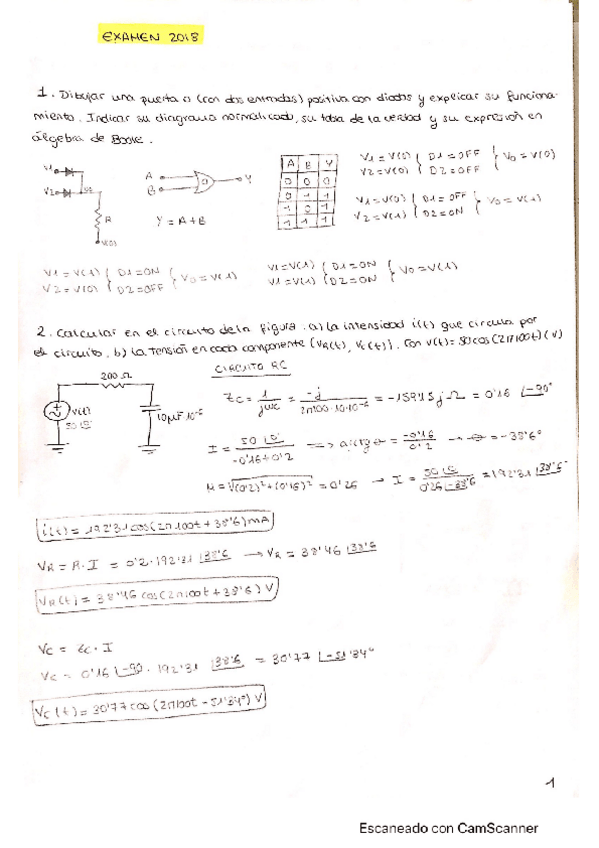 EXAMEN 2018
1. Dibujar una puerta o (con dos entradas) positiva con diodos y explicar su funciona-
miento. Indicar su diagrama normalizado, su tabla de la verdad y su expresión en
álgebra de Boole.
V1
V2
R
V(0)
A
B
Y
Y = A+B
A B Y
0 0 0
0 1 1
1 0 1
1 1 1
V1 = V(0) { D1 = OFF } Vo = V(0)
V2 = V(0) { D2 = OFF
V1 = V(0) { D1 = OFF } Vo = V(1)
V2 = V(1) { D2 = ON
V1 = V(1) { D1 = ON } Vo = V(1)
V2 = V(0) { D2 = OFF
V1 = V(1) { D1 = ON } Vo = V(1)
V1 = V(1) { D2 = ON
2. Calcular en el circuito de la figura. a) la intensidad i(t) que circula por
el circuito. b) la tensión en cada componente (VR(t), Vc(t)). Con v(t) = 50 cos(2π100t) (V)
CIRCUITO RC
200 Ω
V(t)
10μF 10⁻⁶
Zc = 1/jωc = -j/2π100·10·10⁻⁶ = -159'15j Ω = 0'16 ∟-90°
I = 50∟0/-0'16+0'2 => arctg θ = -0'16/0'2 → θ = -38'6°
M = √(0'2)²+(0'16)² = 0'26 → I = 50∟0/0'26∟-38'6 = 192'31∟38'6°
i(t) = 192'31 cos(2π100t + 38'6) mA
VR = R·I = 0'2·192'31∟38'6 → VR = 38'46∟38'6
VR(t) = 38'46 cos(2π100t + 38'6) V
Vc = Zc · I
Vc = 0'16∟-90 · 192'31∟38'6 = 30'77∟-51'34°
Vc(t) = 30'77 cos(2π100t - 51'34°) V
1
Escaneado con CamScanner